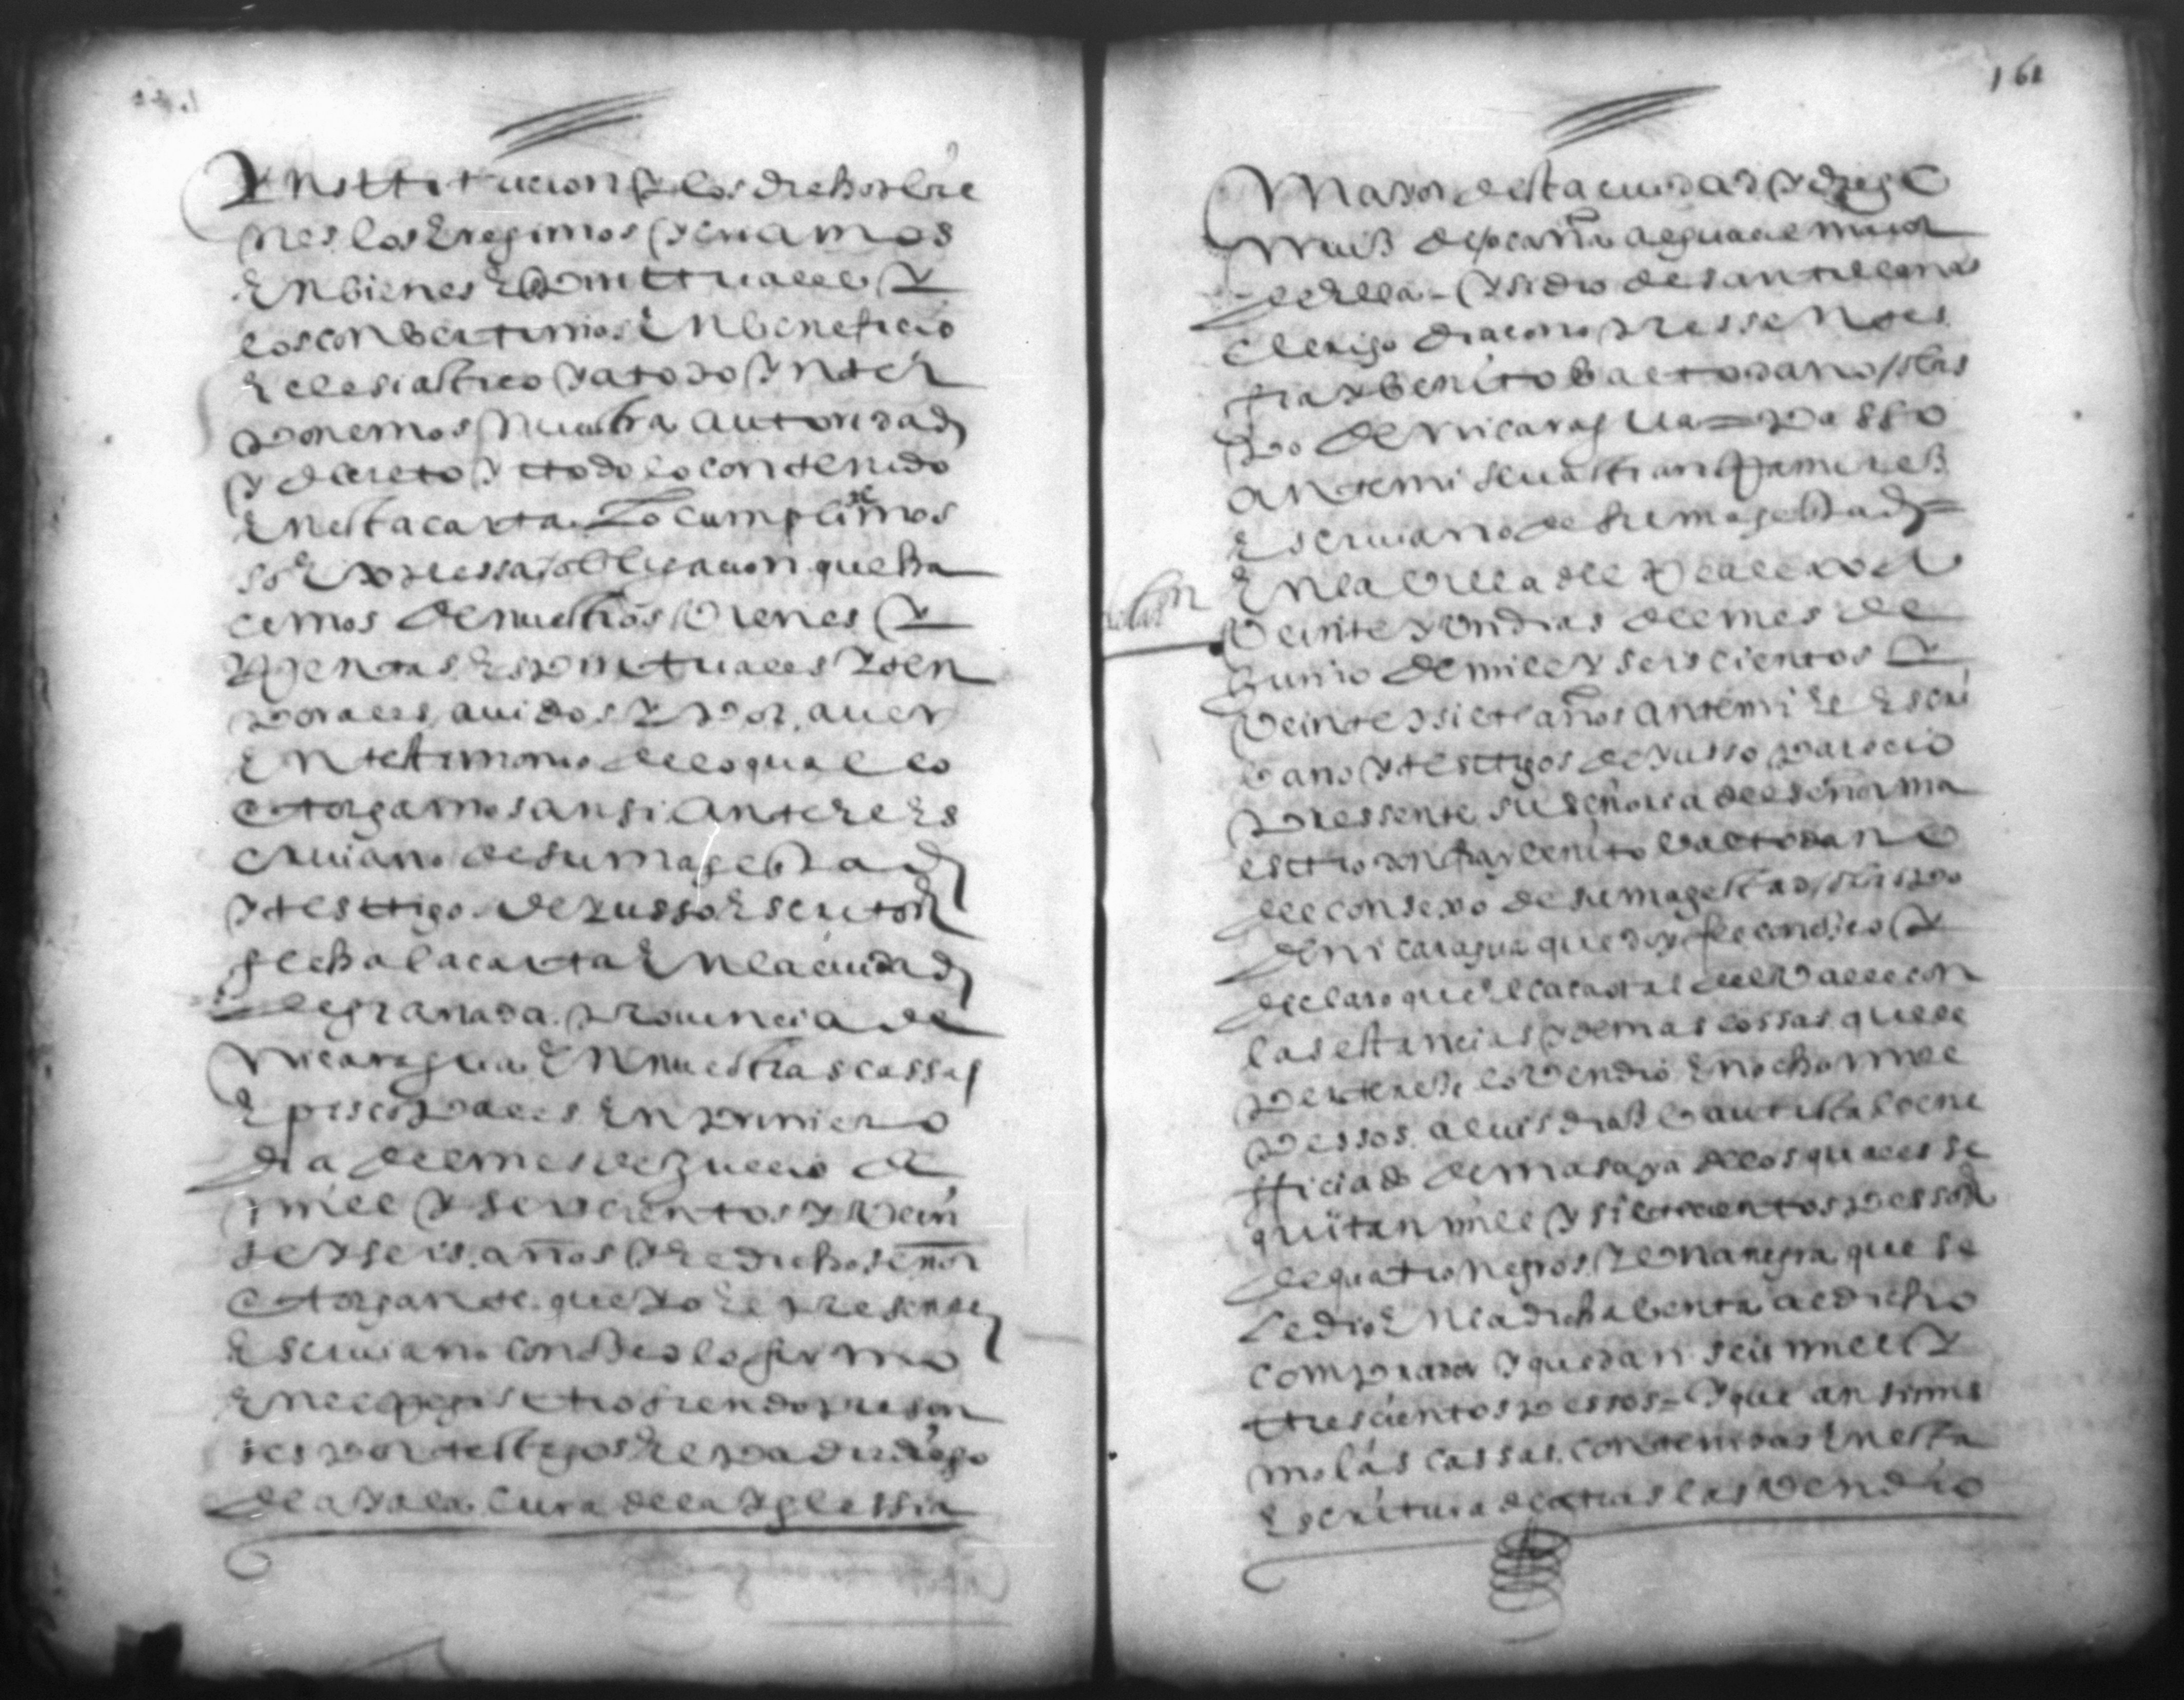 Ynstitucion y los dichos bie
nes los eregimos y criamos
en bienes espirituales y
los conbertimos en beneficio
eclesiastico y a todo ynter
ponemos nuestra autoridad
y decreto y todo lo contenido
en esta carta lo cumpliremos
so expressa obligacion que ha
cemos de nuestros vienes y
rrentas espirituales y ten
porales auidos y por auer
en testimonio de lo qual lo
otorgamos ansi ante el es
criuano de su magestad
y testigos de yusso escritos
fecha la carta en la ciudad
de granada prouincia de
nicaragua en nuestras cassas
episcopales en primero
dia del mes de jullio de
mill y seiscientos y vein
te y seis años y el dicho señor
otorgante que yo el presente
escriuano conozco lo firmo
en el registro siendo presen
tes por testigos el padre diego
de ayala cura de la yglessia
161
Mayor desta ciudad y diego
muñoz de ocaña alguacil mayor
de ella = ysidro de santillana
clerigo diacono pressentes
fray benito baltodano obis
po de nicaragua = passo
ante mi seuastian ramirez
escriuano de su magestad =
En la villa del Realexo a
veinte y un dias del mes de
junio de mill y seiscientos y
veinte y siete años ante mi el escri
bano y testigos de yusso parecio
pressente su señoria del señor ma
estro don fray benito baltodano
del consexo de su magestad obispo
de nicaragua que doy fee conozco y
declaro que el cacaotal del valle con
las estancias y demas cossas que le
pertenece lo vendio en ocho mill
pessos a luis diaz bautista bene
fficiado de masaya de los quales se
quitan mill y sietecientos pessos
de quatro negros y una negra que se
le dio en la dicha benta al dicho
comprador y quedan seis mill y
trescientos pessos = y que ansimis
mo las cassas contenidas en esta
escritura de atras las vendio